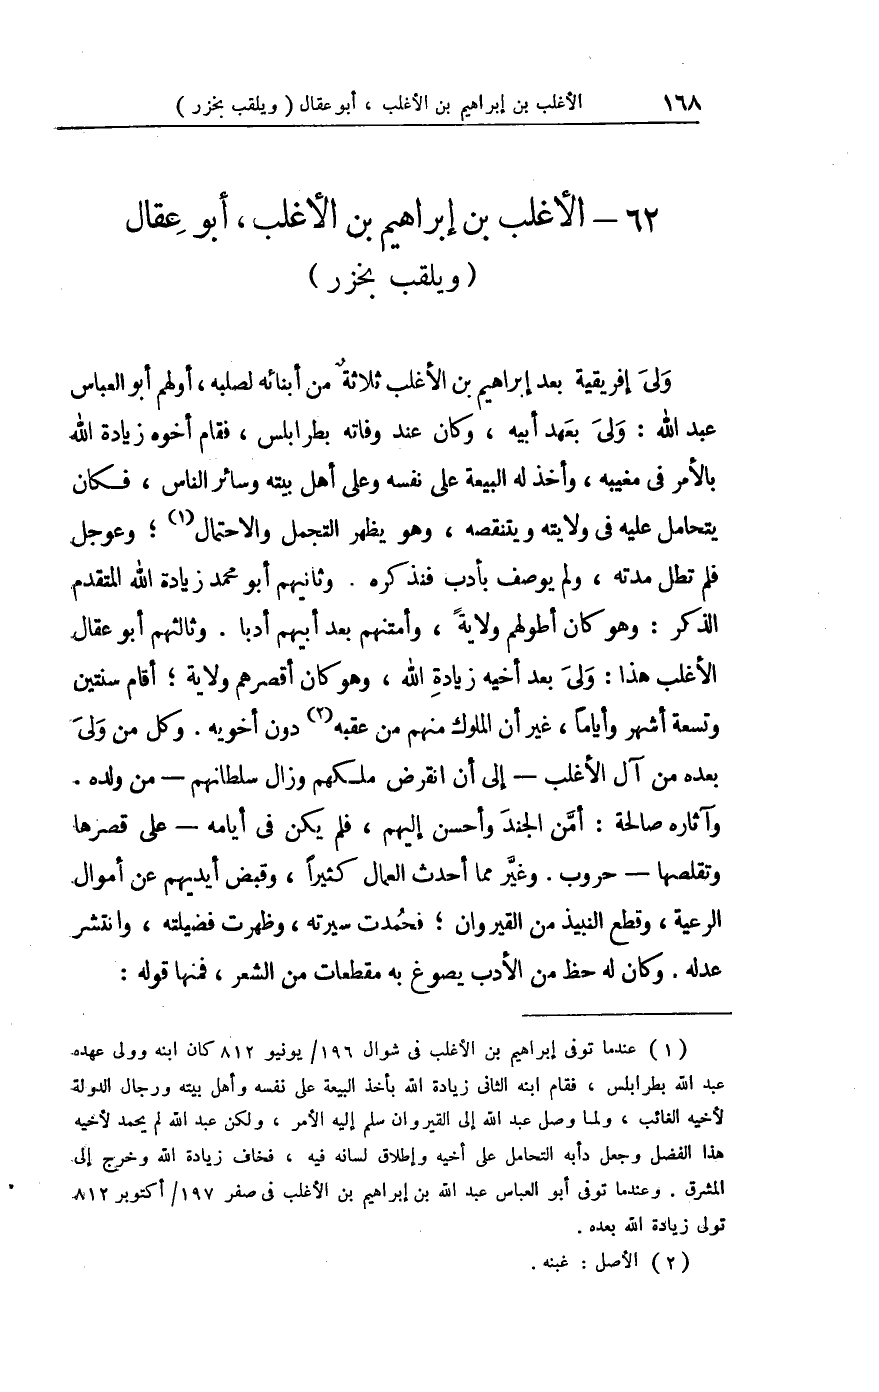 ١٦٨ الأغلب بن إبراهيم بن الأغلب ، أبو عقال ( ويلقب بخزر )
٦٢ – الأغلب بن إبراهيم بن الأغلب ، أبو عِقال
( ويلقب بخزر )
وَلىَ إفريقية بعد إبراهيم بن الأغلب ثلاثةٌ من أبنائه لصلبه ، أولهم أبو العباس
عبد الله : وَلىَ بعَهد أبيه ، وكان عند وفاته بطرابلس ، فقام أخوه زيادة الله
بالأمر فى مغيبه ، وأخذ له البيعة على نفسه وعلى أهل بيته وسائر الناس ، فكان
يتحامل عليه فى ولايته ويتنقصه ، وهو يظهر التجمل والاحتمال(١) ؛ وعوجل
فلم تطل مدته ، ولم يوصف بأدب فنذكره . وثانيهم أبو محمد زيادة الله المتقدم
الذكر : وهو كان أطولهم ولايةً ، وأمتنهم بعد أبيهم أدبا . وثالثهم أبو عقال
الأغلب هذا : وَلىَ بعد أخيه زيادةِ الله ، وهو كان أقصرهم ولاية ؛ أقام سنتين
وتسعة أشهر وأياماً ، غير أن الملوك منهم من عقبه(٢) دون أخويه . وكل من وَلىَ
بعده من آل الأغلب – إلى أن انقرض ملكهم وزال سلطانهم – من ولده .
وآثاره صالحة : أمَّن الجندَ وأحسن إليهم ، فلم يكن فى أيامه – على قصرها
وتقلصها – حروب . وغيَّر مما أحدث العمال كثيراً ، وقبض أيديهم عن أموال
الرعية ، وقطع النبيذ من القيروان ؛ فحُمدت سيرته ، وظهرت فضيلته ، وانتشر
عدله . وكان له حظ من الأدب يصوغ به مقطعات من الشعر ، فمنها قوله :
( ١ ) عندما توفى إبراهيم بن الأغلب فى شوال ١٩٦/ يونيو ٨١٢ كان ابنه وولى عهده
عبد الله بطرابلس ، فقام ابنه الثانى زيادة الله بأخذ البيعة على نفسه وأهل بيته ورجال الدولة
لأخيه الغائب ، ولما وصل عبد الله إلى القيروان سلم إليه الأمر ، ولكن عبد الله لم يحمد لأخيه
هذا الفضل وجعل دأبه التحامل على أخيه وإطلاق لسانه فيه ، فخاف زيادة الله وخرج إلى
المشرق . وعندما توفى أبو العباس عبد الله بن إبراهيم بن الأغلب فى صفر ١٩٧/ أكتوبر ٨١٢
تولى زيادة الله بعده .
( ٢ ) الأصل : غبنه .